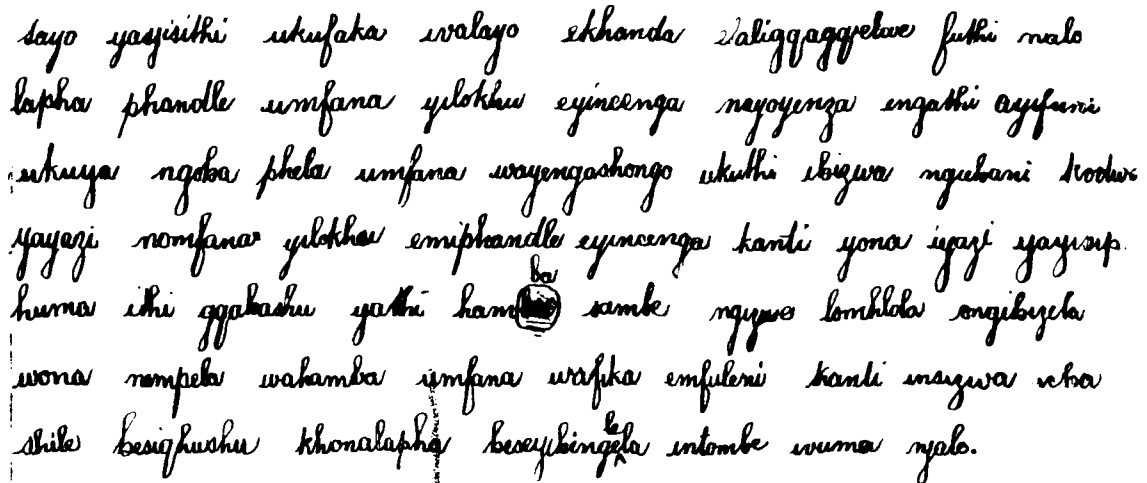 sayo yayisithi ukufaka uvalayo ekhanda valigqaggqelwe futhi nalo
lapha phandle umfana yilokhu eyincenga nayoyenza engathi ayifuni
ukuya ngoba phela umfana wayengashongo ukuthi ibizwa ngubani kodwa
yayazi nomfana yilokhu emiphandle eyincenga kanti yona iyazi yayisip
huma ithi gqabashu yathi hamba sambe ngizwe lomhlola ongibizela
wona nempela wahamba umfana wafika emfuleni kanti insizwa icha
shile besiqhushu khonalapha beseyibingelela intombe ivuma njalo.